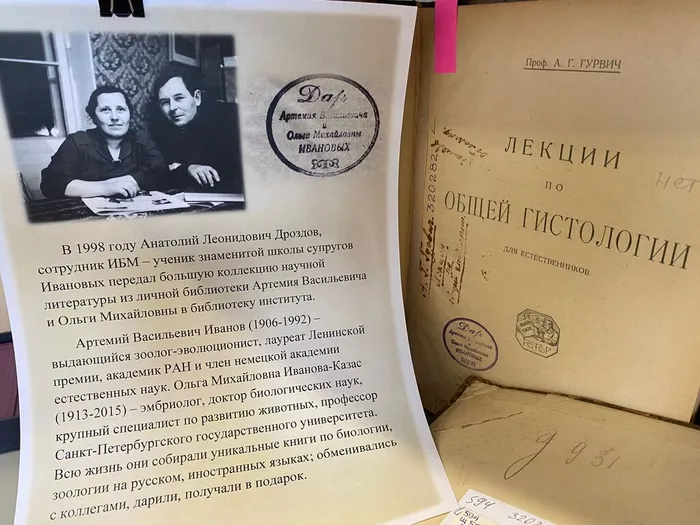 Дар
Артемия Васильевича
и
Ольги Михайловны
ИВАНОВЫХ
В 1998 году Анатолий Леонидович Дроздов,
сотрудник ИБМ – ученик знаменитой школы супругов
Ивановых передал большую коллекцию научной
литературы из личной библиотеки Артемия Васильевича
и Ольги Михайловны в библиотеку института.
Артемий Васильевич Иванов (1906-1992) –
выдающийся зоолог-эволюционист, лауреат Ленинской
премии, академик РАН и член немецкой академии
естественных наук. Ольга Михайловна Иванова-Казас
(1913-2015) – эмбриолог, доктор биологических наук,
крупный специалист по развитию животных, профессор
Санкт-Петербургского государственного университета.
Всю жизнь они собирали уникальные книги по биологии,
зоологии на русском, иностранных языках; обменивались
с коллегами, дарили, получали в подарок.
Проф. А. Г. ГУРВИЧ
ЛЕКЦИИ
ПО
ОБЩЕЙ ГИСТОЛОГИИ
ДЛЯ ЕСТЕСТВЕННИКОВ
нет
320282
Дар
Артемия Васильевича
и
Ольги Михайловны
ИВАНОВЫХ
9931
594